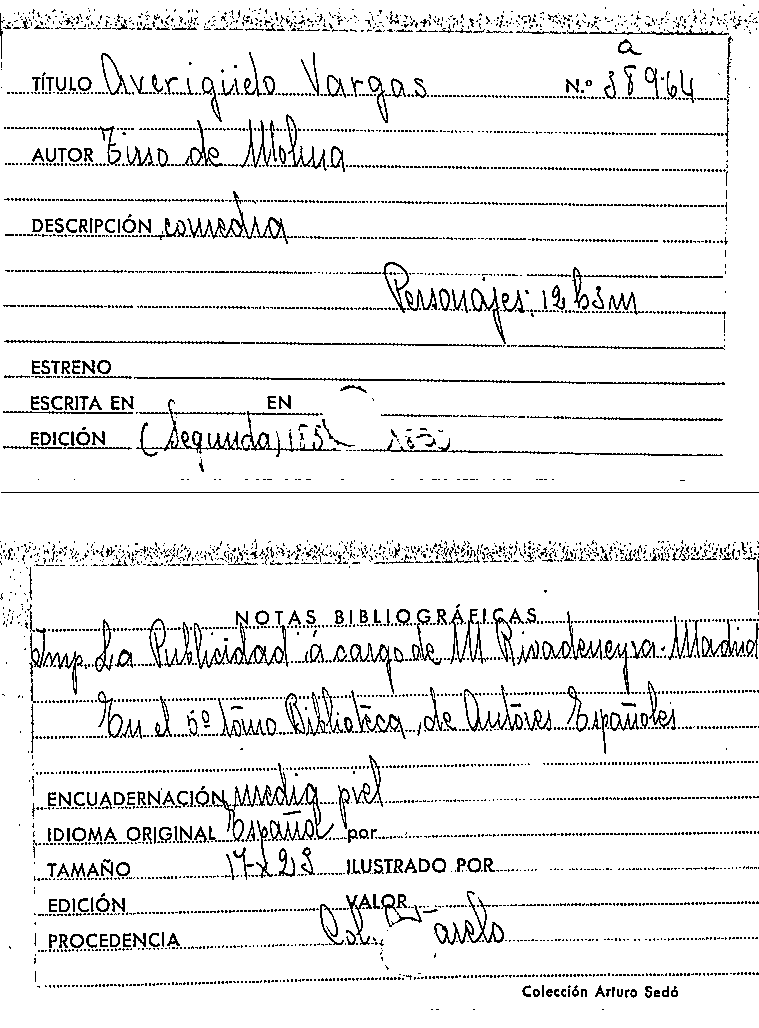 a
TÍTULO Averigüelo Vargas N.º 38964
AUTOR Tirso de Molina
DESCRIPCIÓN comedia
Personajes: 12 h 3 m
ESTRENO
ESCRITA EN EN
EDICIÓN (Segunda)
NOTAS BIBLIOGRÁFICAS
Imp La Publicidad á cargo de M Rivadeneyra. Madrid
En el 5º tomo Biblioteca de Autores Españoles
ENCUADERNACIÓN media piel
IDIOMA ORIGINAL Español por
TAMAÑO 17 x 23 ILUSTRADO POR
EDICIÓN VALOR
PROCEDENCIA Col.
Colección Arturo Sedó